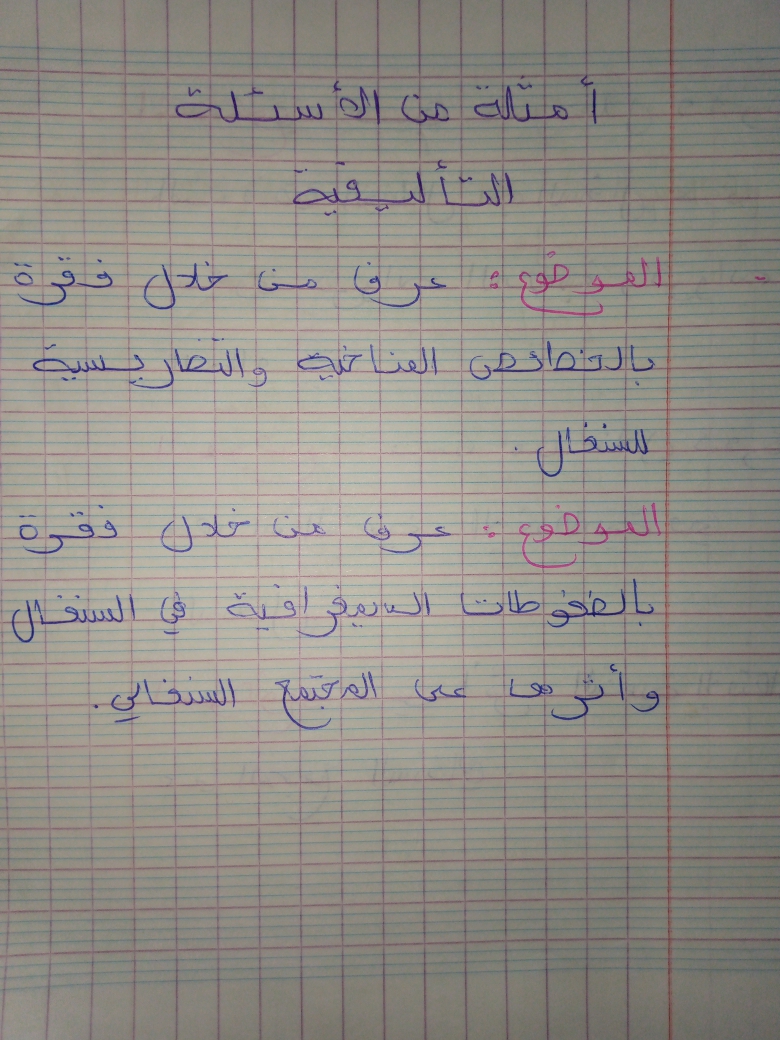 أمثلة من الأسئلة
التأليفية
- الموضوع: عرف من خلال فقرة
بالخصائص المناخية والتضاريسية
للسنغال.
الموضوع: عرف من خلال فقرة
بالضغوطات الديمغرافية في السنغال
وأثرها على المجتمع السنغالي.